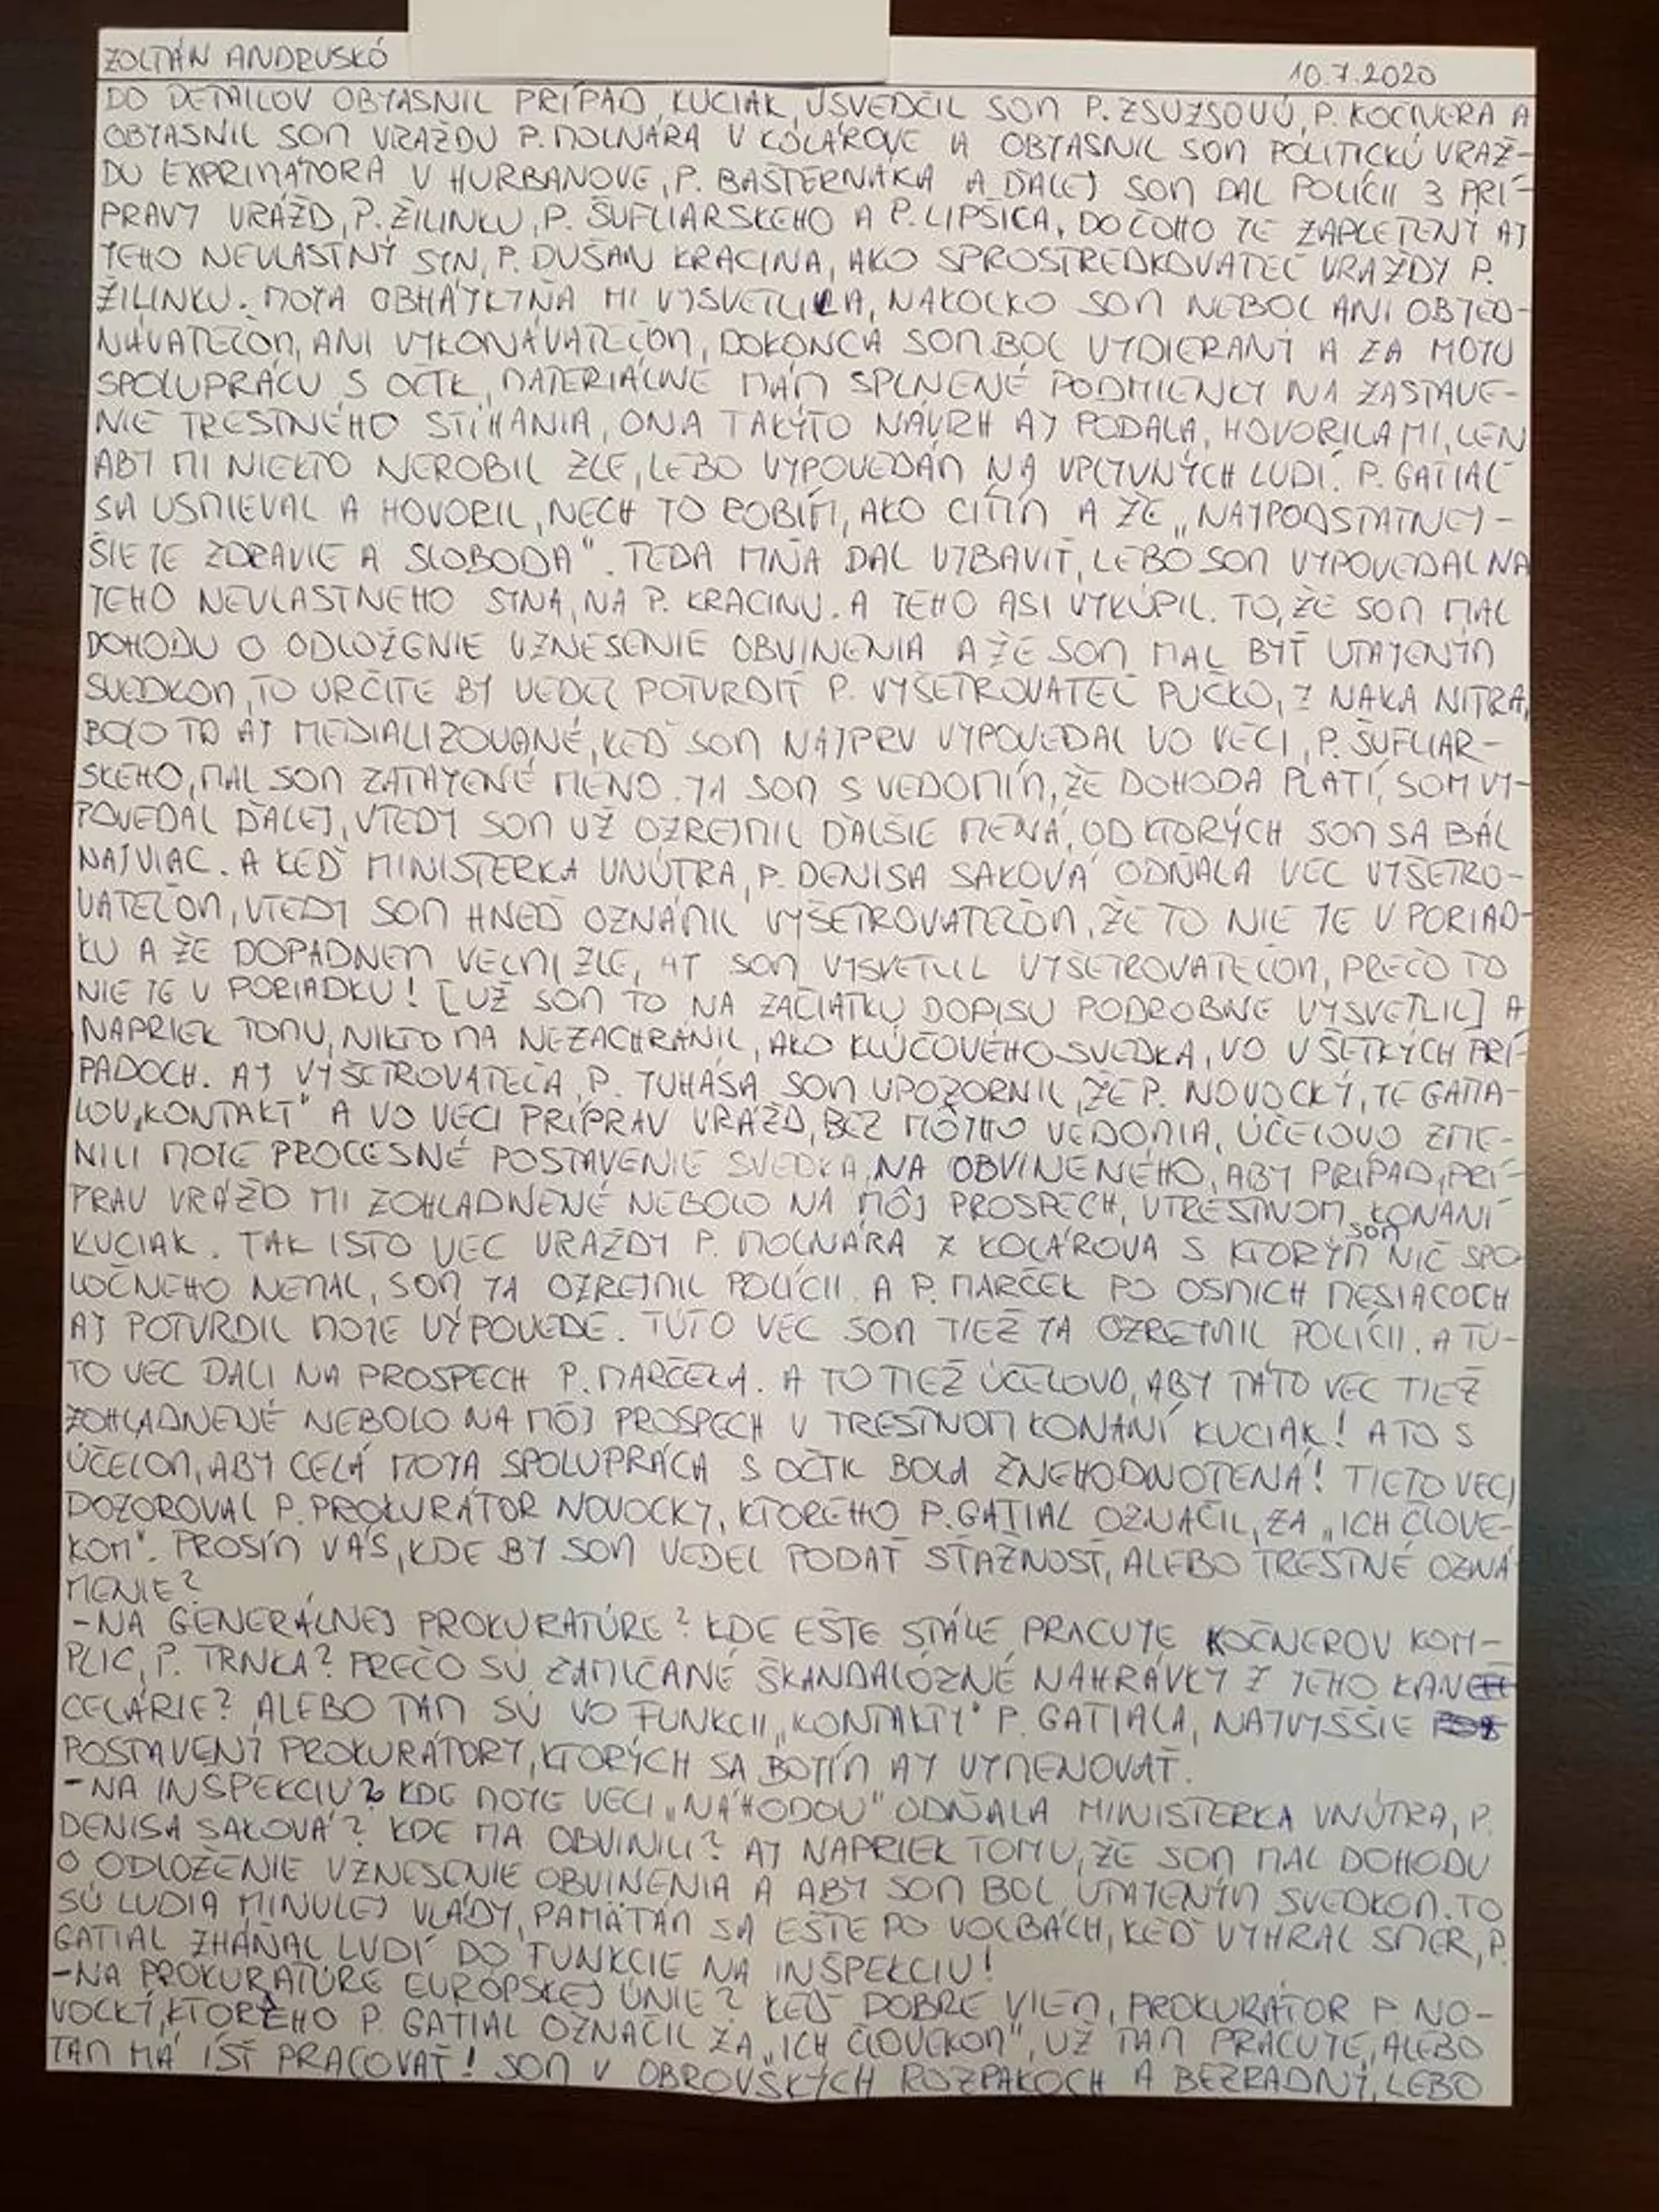 ZOLTÁN ANDRUSKÓ
10.7.2020
DO DETAILOV OBJASNIL PRÍPAD, KUCIAK, USVEDČIL SOM P. ZSUZSOVÚ, P. KOČNERA A
OBJASNIL SOM VRAŽDU P. MOLNÁRA V KOLÁROVE A OBJASNIL SOM POLITICKÚ VRAŽ-
DU EXPRIMÁTORA V HURBANOVE, P. BAŠTERNÁKA A ĎALEJ SOM DAL POLÍCII 3 PRÍ-
PRAVY VRÁŽD, P. ŽILINKU, P. ŠUFLIARSKEHO A P. LIPŠICA, DO ČOHO JE ZAPLETENÝ AJ
JEHO NEVLASTNÝ SYN, P. DUŠAN KRACINA, AKO SPROSTREDKOVATEĽ VRAŽDY P.
ŽILINKU. MOJA OBHÁJKYŇA MI VYSVETLILA, NAKOĽKO SOM NEBOL ANI OBJED-
NÁVATEĽOM, ANI VYKONÁVATEĽOM, DOKONCA SOM BOL VYDIERANÝ A ZA MOJU
SPOLUPRÁCU S OČTK, MATERIÁLNE MÁM SPLNENÉ PODMIENKY NA ZASTAVE-
NIE TRESTNÉHO STÍHANIA, ONA TAKÝTO NÁVRH AJ PODALA, HOVORILA MI, LEN
ABY MI NIEKTO NEROBIL ZLE, LEBO VYPOVEDÁM NA VPLYVNÝCH LUDÍ. P. GÁTIAL
SA USMIEVAL A HOVORIL, NECH TO ROBÍM, AKO CÍTIM A ŽE „NAJPODSTATNEJ-
ŠIE JE ZDRAVIE A SLOBODA". TEDA MŇA DAL VYBAVIŤ, LEBO SOM VYPOVEDAL NA
JEHO NEVLASTNEHO SYNA, NA P. KRACINU. A JEHO ASI VYKÚPIL. TO, ŽE SOM MAL
DOHODU O ODLOŽENIE VZNESENIE OBVINENIA A ŽE SOM MAL BYŤ UTAJENÝM
SVEDKOM, TO URČITE BY VEDEL POTVRDIŤ P. VYŠETROVATEĽ PUČKO, Z NAKA NITRA,
BOLO TO AJ MEDIALIZOVANÉ, KEĎ SOM NAJPRV VYPOVEDAL VO VECI, P. ŠUFLIAR-
SKEHO, MAL SOM ZATAJENÉ MENO. JA SOM S VEDOMÍM, ŽE DOHODA PLATÍ, SOM VY-
POVEDAL ĎALEJ, VTEDY SOM UŽ OZREJMIL ĎALŠIE MENÁ, OD KTORÝCH SOM SA BÁL
NAJVIAC. A KEĎ MINISTERKA VNÚTRA, P. DENISA SAKOVÁ ODŇALA VEC VYŠETRO-
VATEĽOM, VTEDY SOM HNEĎ OZNÁMIL VYŠETROVATEĽOM, ŽE TO NIE JE V PORIAD-
KU A ŽE DOPADNEM VEĽMI ZLE, AJ SOM VYSVETLIL VYŠETROVATEĽOM, PREČO TO
NIE JE V PORIADKU! [UŽ SOM TO NA ZAČIATKU DOPISU PODROBNE VYSVETLIL] A
NAPRIEK TOMU, NIKTO MA NEZACHRÁNIL, AKO KLÚČOVÉHO SVEDKA, VO VŠETKÝCH PRÍ-
PADOCH. AJ VYŠETROVATEĽA, P. JUHÁSA SOM UPOZORNIL, ŽE P. NOVOCKÝ, JE GATIA-
LOV „KONTAKT" A VO VECI PRÍPRAV VRÁŽD, BEZ MÔJHO VEDOMIA, ÚČELOVO ZME-
NILI MOJE PROCESNÉ POSTAVENIE SVEDKA, NA OBVINENÉHO, ABY PRÍPAD, PRÍ-
PRAV VRÁŽD MI ZOHLADNENÉ NEBOLO NA MÔJ PROSPECH, V TRESTNOM KONANÍ
KUCIAK. TAK ISTO VEC VRAŽDY P. MOLNÁRA Z KOLÁROVA S KTORÝM SOM NIČ SPO-
LOČNÉHO NEMAL, SOM JA OZREJMIL POLÍCII. A P. MARČEK PO OSMICH MESIACOCH
AJ POTVRDIL MOJE VÝPOVEDE. TÚTO VEC SOM TIEŽ JA OZREJMIL POLÍCII. A TÚ-
TO VEC DALI NA PROSPECH P. MARČEKA. A TO TIEŽ ÚČELOVO, ABY TÁTO VEC TIEŽ
ZOHLADNENÉ NEBOLO NA MÔJ PROSPECH V TRESTNOM KONANÍ KUCIAK! A TO S
ÚČELOM, ABY CELÁ MOJA SPOLUPRÁCA S OČTK BOLA ZNEHODNOTENÁ! TIETO VECI
DOZOROVAL P. PROKURÁTOR NOVOCKÝ, KTOREHO P. GATIAL OZNAČIL, ZA „ICH ČLOVE-
KOM". PROSÍM VÁS, KDE BY SOM VEDEL PODAŤ SŤAŽNOSŤ, ALEBO TRESTNÉ OZNÁ-
MENIE?
-NA GENERÁLNEJ PROKURATÚRE? KDE EŠTE STÁLE PRACUJE KOČNEROV KOM-
PLIC, P. TRNKA? PREČO SÚ ZAMLČANÉ ŠKANDALÓZNÉ NAHRÁVKY Z JEHO KAN
CELÁRIE? ALEBO TAM SÚ VO FUNKCII „KONTAKTY" P. GATIALA, NAJVYŠŠIE
POSTAVENÝ PROKURÁTORY, KTORÝCH SA BOJÍM AJ VYMENOVAŤ.
-NA INŠPEKCIU? KDE MOJE VECI „NÁHODOU" ODŇALA MINISTERKA VNÚTRA, P.
DENISA SAKOVÁ? KDE MA OBVINILI? AJ NAPRIEK TOMU, ŽE SOM MAL DOHODU
O ODLOŽENIE VZNESENIE OBVINENIA A ABY SOM BOL UTAJENÝM SVEDKOM. TO
SÚ LUDIA MINULEJ VLÁDY, PAMÄTÁM SA EŠTE PO VOĽBÁCH, KEĎ VYHRAL SMER, P.
GATIAL ZHÁŇAL LUDÍ DO FUNKCIE NA INŠPEKCIU!
-NA PROKURATÚRE EURÓPSKEJ ÚNIE? KEĎ DOBRE VIEM, PROKURÁTOR P. NO-
VOCKÝ, KTORÉHO P. GATIAL OZNAČIL ZA „ICH ČLOVEKOM", UŽ TAM PRACUJE, ALEBO
TAM MÁ ÍSŤ PRACOVAŤ! SOM V OBROVSKÝCH ROZPAKOCH A BEZRADNÝ, LEBO